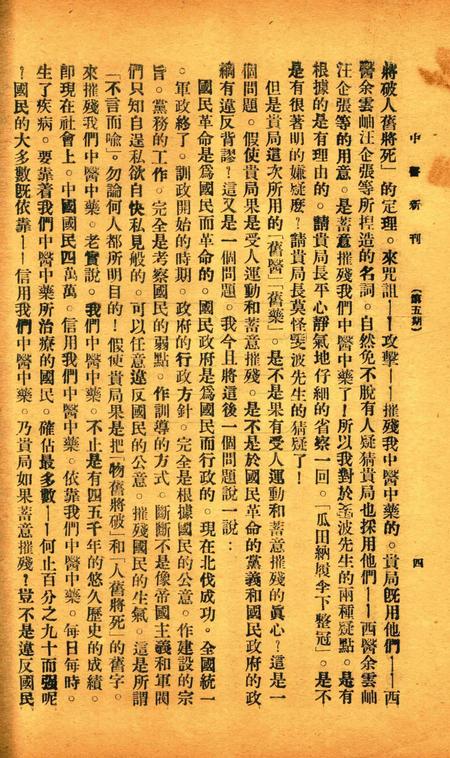 中醫新刊
(第五期)
四
將破人舊將死」的定理。來咒詛——攻擊——摧殘我中醫中藥的。貴局旣用他們——西
醫余雲岫汪企張等所揑造的名詞。自然免不脫有人疑猜貴局也採用他們——西醫余雲岫
汪企張等的用意。是蓄意摧殘我們中醫中藥了!所以我對於波先生的兩種疑點。是有
根據的是有理由的。請貴局長平心靜氣地仔細的省察一回。「瓜田納履李下整冠」。是不
是有很著明的嫌疑麽?請貴局長莫怪波先生的猜疑了!
但是貴局這次所用的「舊醫」「舊藥」。是不是果有受人運動和蓄意摧殘的眞心?這是一
個問題。假使貴局果是受人運動和蓄意摧殘。是不是於國民革命的黨義和國民政府的政
綱有違反背謬?這又是一個問題。我今且將這後一個問題說一說:
國民革命是爲國民而革命的。國民政府是爲國民而行政的。現在北伐成功。全國統一
。軍政終了。訓政開始的時期。政府的行政方針。完全是根據國民的公意。作建設的宗
旨。黨務的工作。完全是考察國民的弱點。作訓導的方式。斷斷不是像帝國主義和軍閥
們只知自逞私欲自快私見般的。可以任意違反國民的公意。摧殘國民的生氣。這是所謂
「不言而喩」。勿論何人都所明目的!假使貴局果是把「物舊將破」和「人舊將死」的舊字。
來摧殘我們中醫中藥。老實說。我們中醫中藥。不止是有四五千年的悠久歷史的成績。
卽現在社會上。中國國民四萬萬。信用我們中醫中藥。依靠我們中醫中藥。每日每時。
生了疾病。要靠着我們中醫中藥所治療的國民。確估最多數——何止百分之九十而强呢
?國民的大多數旣依靠——信用我們中醫中藥。乃貴局如果蓄意摧殘?豈不是違反國民